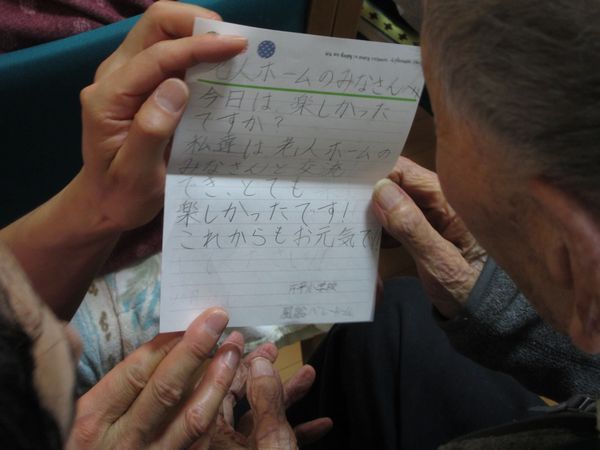 老人ホームのみなさんへ
今日は、楽しかった
ですか?
私達は、老人ホームの
みなさんと交流
でき、とても
楽しかったです!
これからもお元気で
小学校